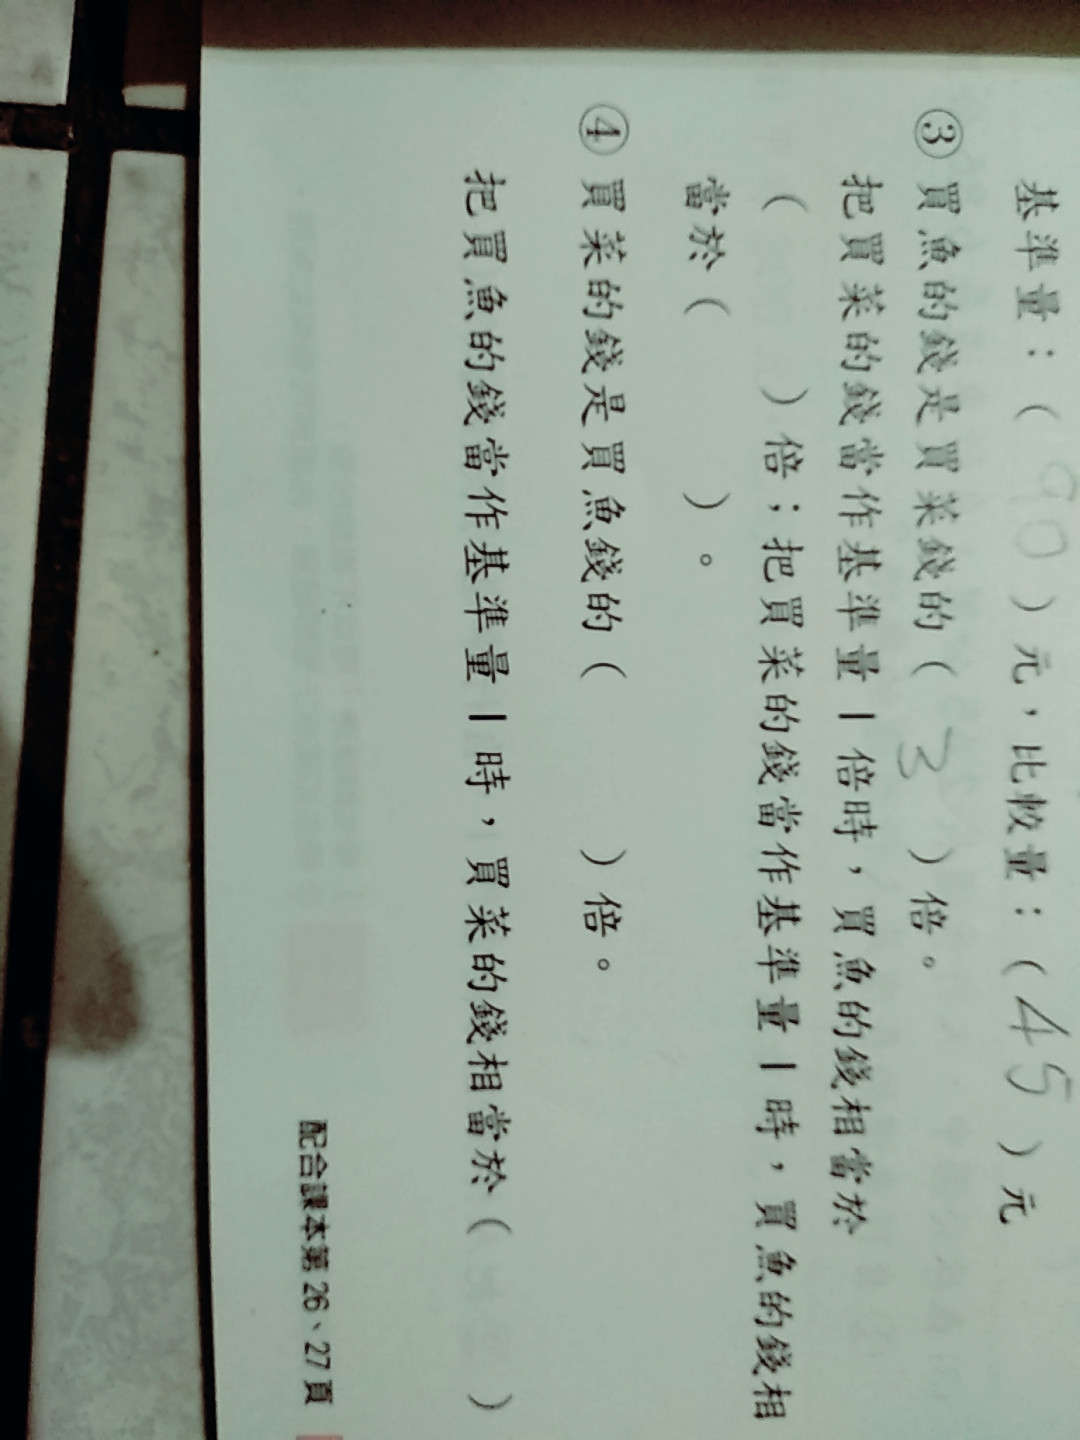 基準量：( 90 )元，比較量：( 45 )元
③ 買魚的錢是買菜錢的( 3 )倍。
把買菜的錢當作基準量1倍時，買魚的錢相當於
( )倍；把買菜的錢當作基準量1時，買魚的錢相
當於( )。
④ 買菜的錢是買魚錢的( )倍。
把買魚的錢當作基準量1時，買菜的錢相當於( )
配合課本第26、27頁